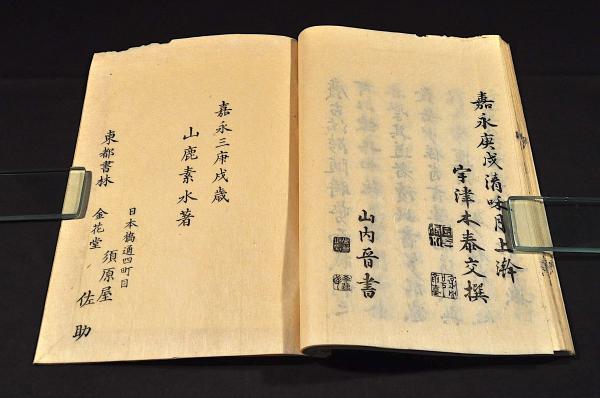 嘉永庚戌清和月上澣
宇津木泰交撰
山内晉書
嘉永三庚戌歳
山鹿素水著
東都書林
日本橋通四町目
金花堂 須原屋佐助